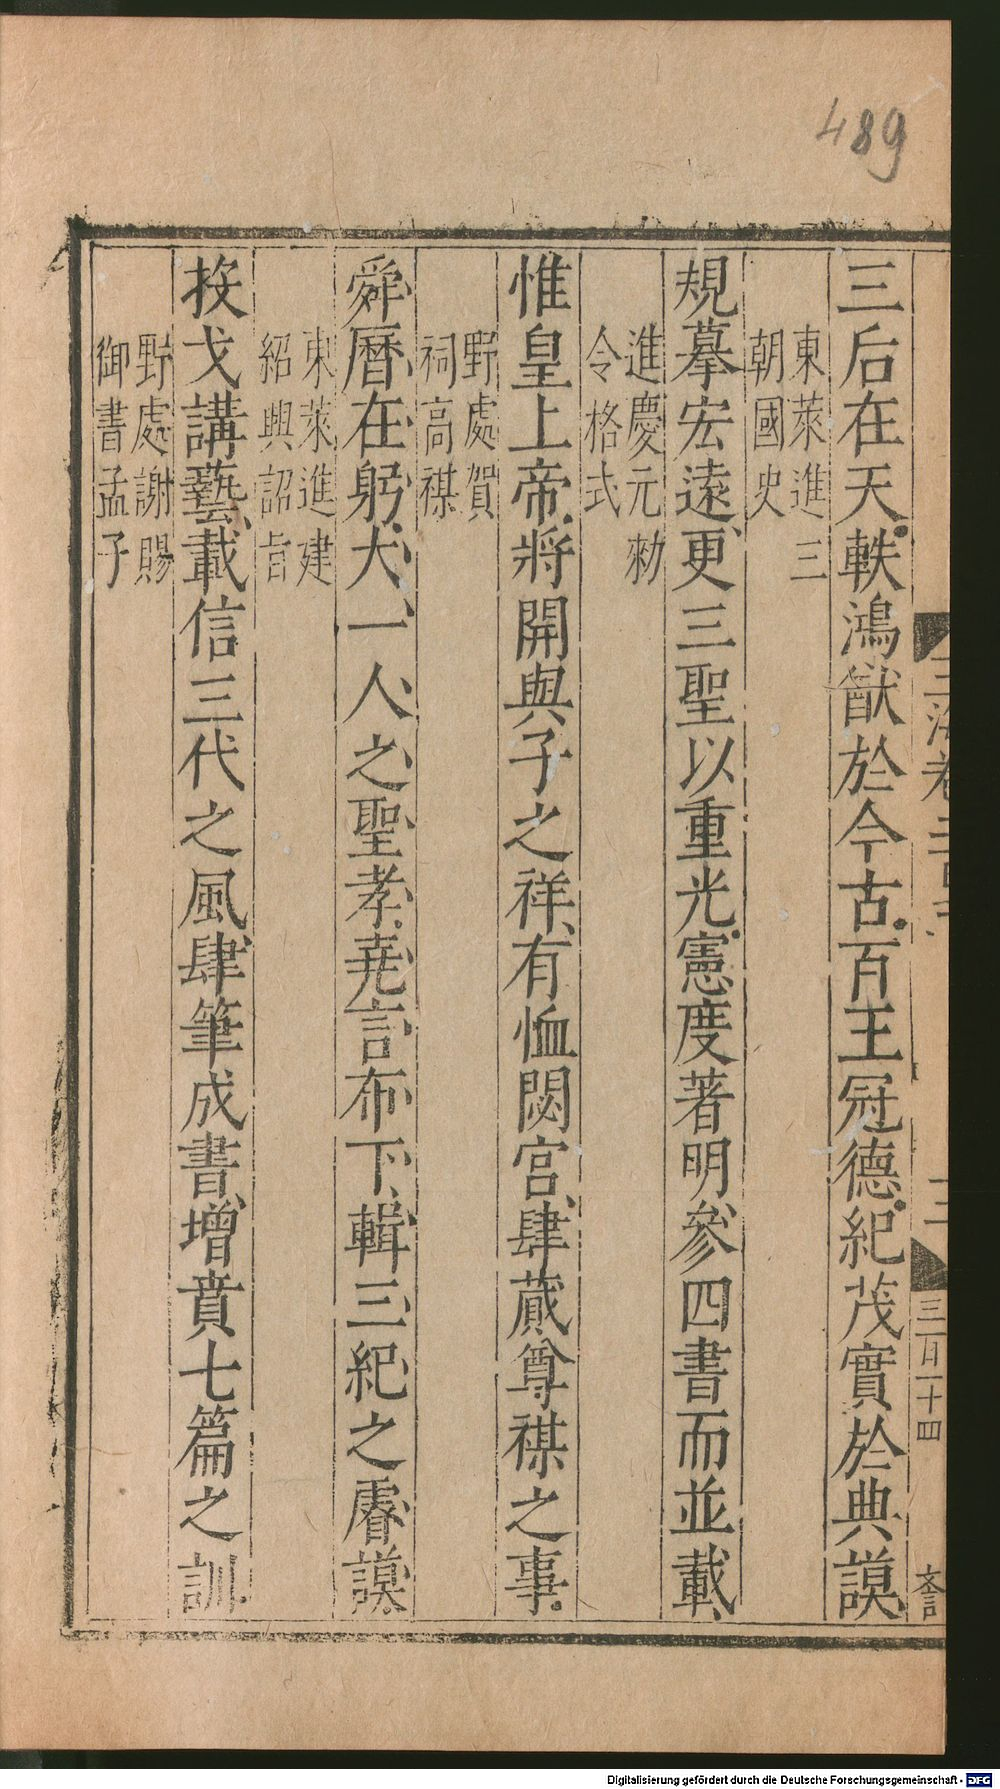 489
三后在天軼鴻猷於今古百王冠德紀茂實於典謨
東萊進三
朝國史
規摹宏遠更三聖以重光憲度著明參四書而並載
進慶元勑
令格式
惟皇上帝將開與子之祥有恤閟宮肆蕆尊禖之事
野處賀
祠高禖
舜曆在躬大一人之聖孝堯言布下輯三紀之睿謨
東萊進建
紹興詔旨
投戈講藝載信三代之風肆筆成書增賁七篇之訓
野處謝賜
御書孟子
三百一十四
Digitalisierung gefördert durch die Deutsche Forschungsgemeinschaft - DFG